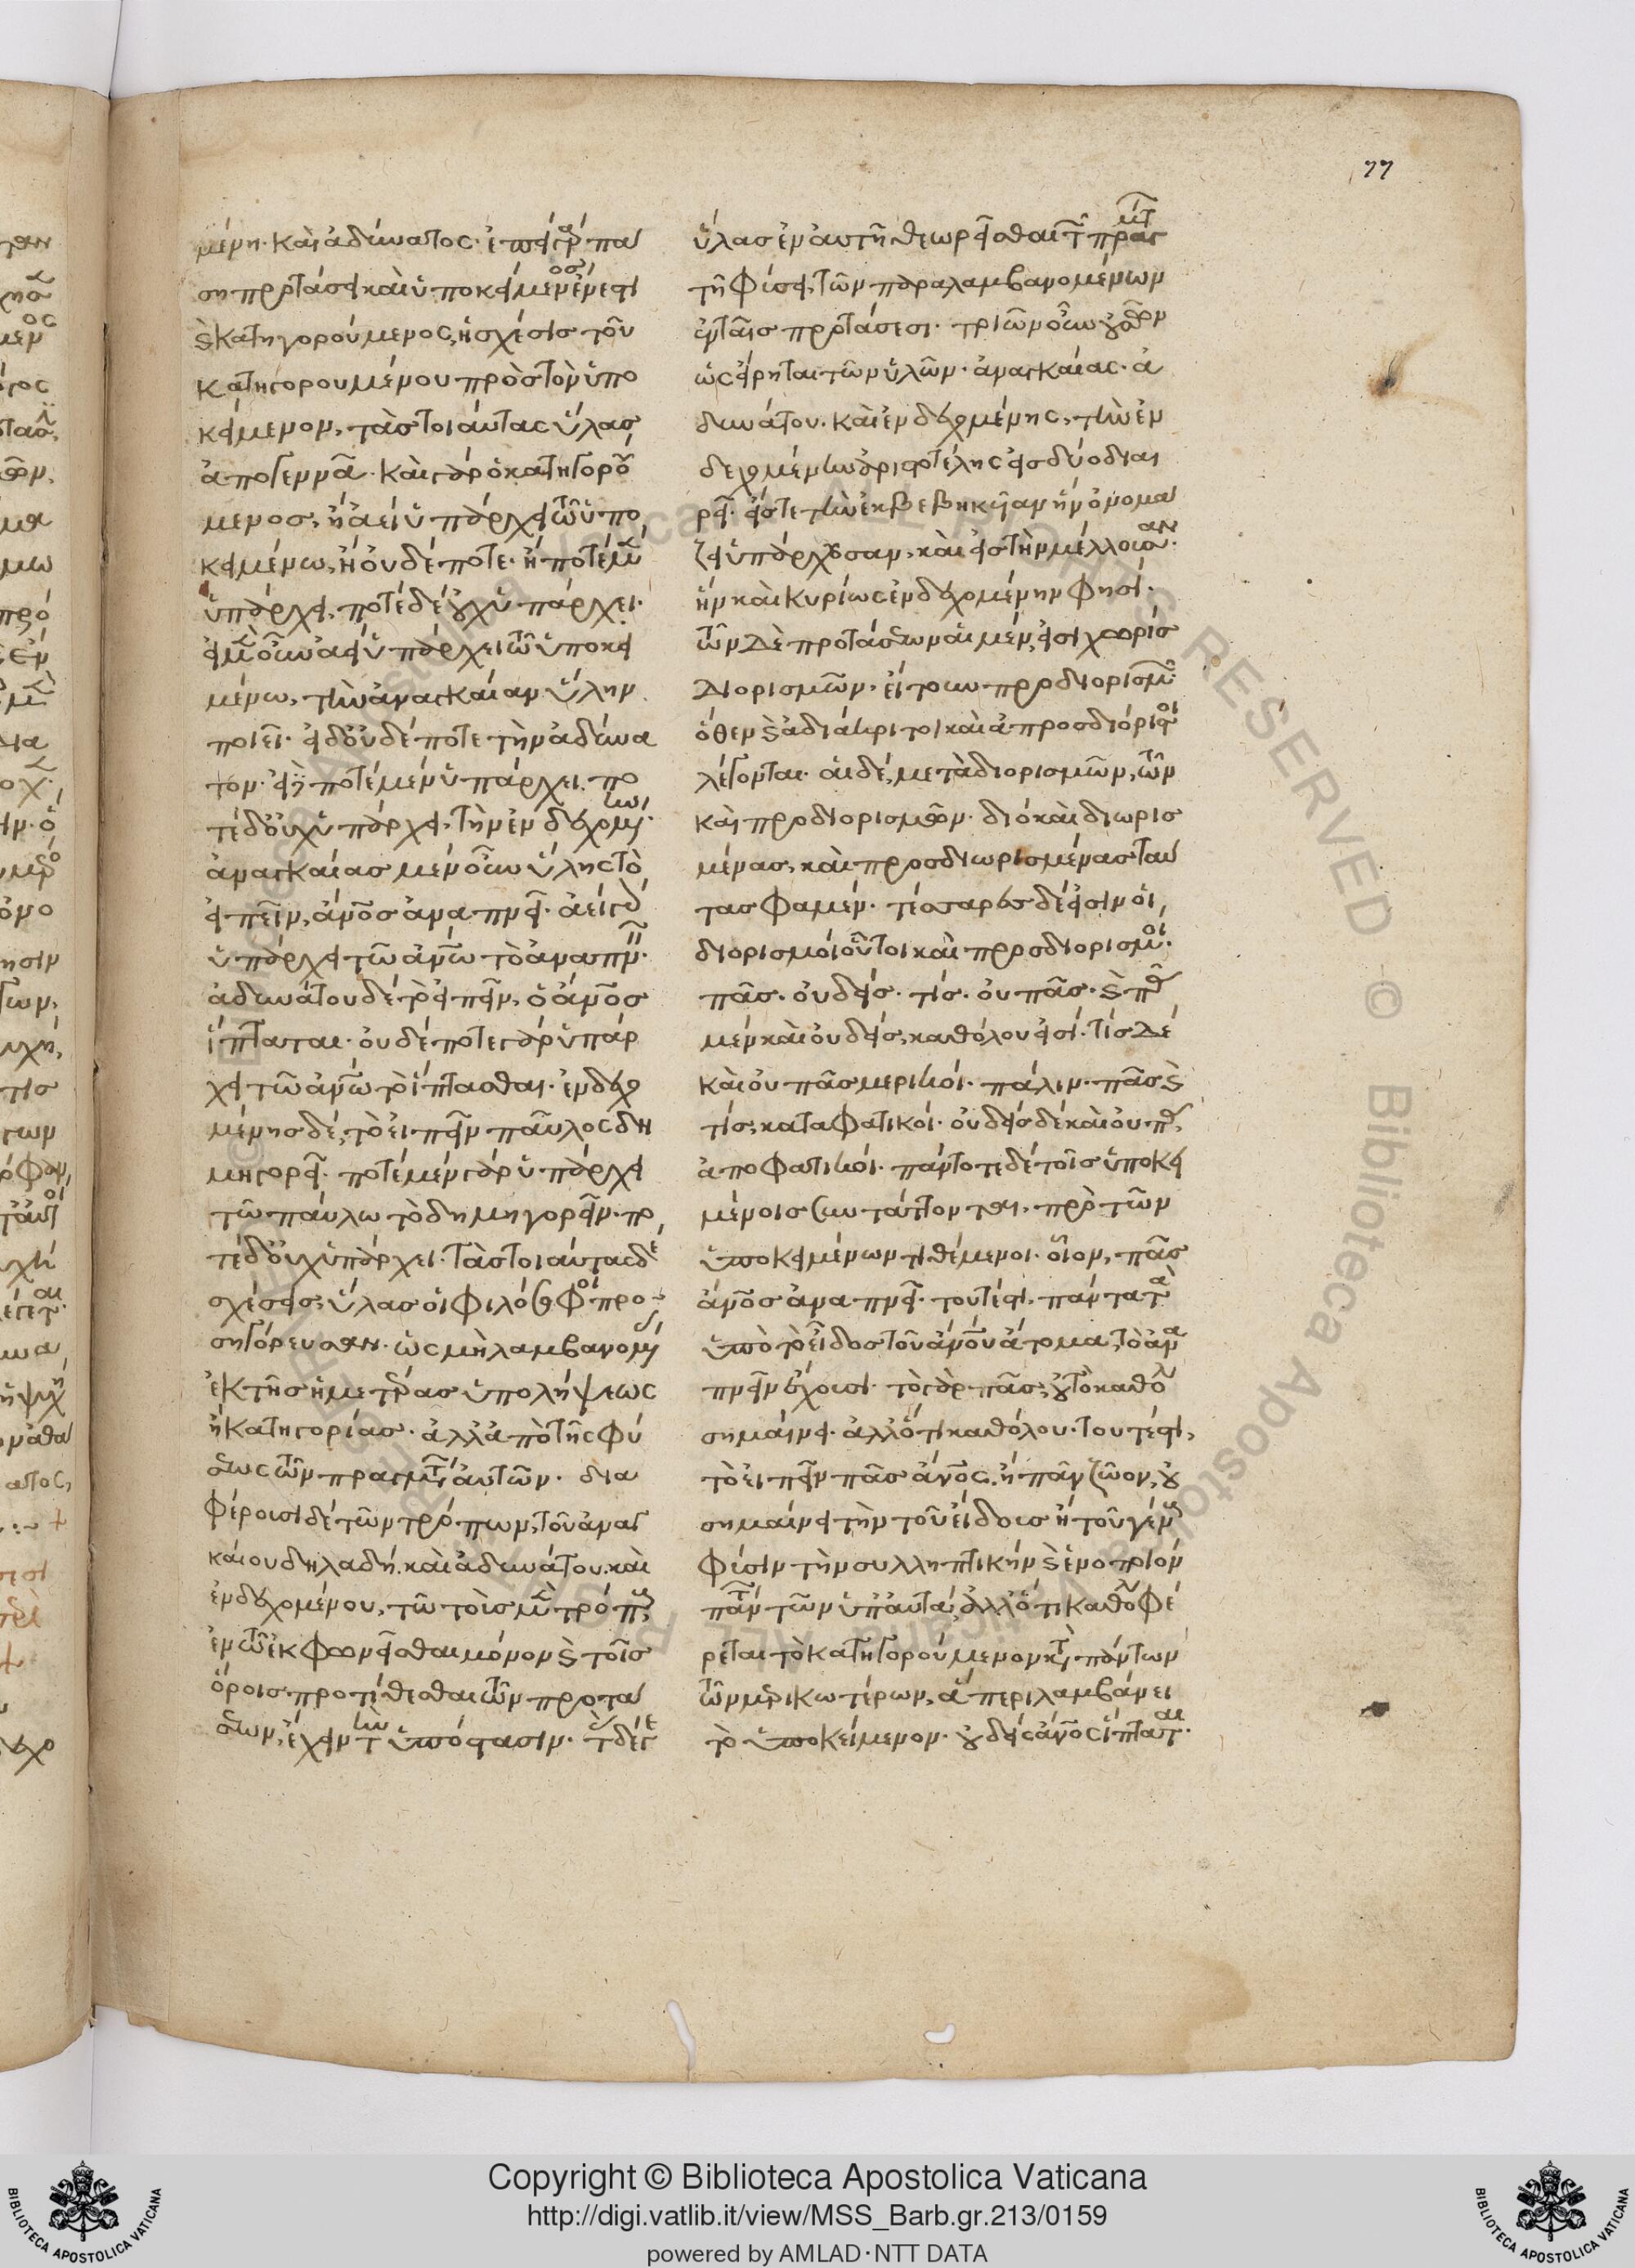 77
μένη. καὶ ἀδύνατος. ἐπεὶ γὰρ πά
ση προτάσει καὶ ὑποκείμενός ἐστι
καὶ κατηγορούμενος, ἡ σχέσις τοῦ
κατηγορουμένου πρὸς τὸν ὑπο
κείμενον, τὰς τοιαύτας ὕλας
ἀπογεννᾶ. καὶ γὰρ ὁ κατηγορού
μενος, ἢ ἀεὶ ὑπάρχει τῶ ὑπο
κειμένω, ἢ οὐδέποτε. ἢ ποτὲ μὲν
ὑπάρχει, ποτὲ δὲ οὐχ ὑπάρχει.
εἰ μὲν οὖν ἀεὶ ὑπάρχει τῶ ὑποκει
μένω, τὴν ἀναγκαίαν ὕλην
ποιεῖ. εἰ δ' οὐδέποτε τὴν ἀδύνα
τον. εἰ ποτὲ μὲν ὑπάρχει, πο
τὲ δ' οὐχ ὑπάρχει, τὴν ἐνδεχομένην.
ἀναγκαίας μὲν οὖν ὕλης τὸ
εἰπεῖν, ἄνος ἀναπνεῖ. ἀεὶ γὰρ
ὑπάρχει τῶ ἀνω τὸ ἀναπνεῖν.
ἀδυνάτου δὲ τὸ εἰπεῖν, ὁ ἄνος
ἵπταται. οὐδέποτε γὰρ ὑπάρ
χει τῶ ἀνω τὸ ἵπτασθαι. ἐνδεχο
μένης δὲ, τὸ εἰπεῖν παῦλος δη
μηγορεῖ. ποτὲ μὲν γὰρ ὑπάρχει
τῶ παύλω τὸ δημηγορεῖν. πο
τὲ δ' οὐχ ὑπάρχει. τὰς τοιαύτας δὲ
σχέσεις, ὕλας οἱ φιλόσοφοι προ
σηγόρευσαν. ὡς μὴ λαμβανομένας
ἐκ τῆς ἡμετέρας ὑπολήψεως
ἢ κατηγορίας. ἀλλ' ἀπὸ τῆς φύ
σεως τῶν πραγμάτων αὐτῶν. δια
φέρουσι δὲ τῶν τρόπων, τοῦ ἀναγ
καίου δηλαδή. καὶ ἀδυνάτου. καὶ
ἐνδεχομένου, τῶ τοὺς μὲν τρόπους,
ἐν τῶ ἐκφωνεῖσθαι μόνον καὶ τοῖς
ὅροις προτίθεσθαι τῶν προτά
σεων, ἔχειν τὴν ὑπόστασιν. τὰς δέ γε
ὕλας ἐν αὐτῆ θεωρεῖσθαι τῆ τῶν πραγμάτων
τῆ φύσει, τῶν παραλαμβανομένων
ἐν ταῖς προτάσεσι. τριῶν οὖν οὐσῶν
ὡς εἴρηται τῶν ὑλῶν. ἀναγκαίας. ἀ
δυνάτου. καὶ ἐνδεχομένης, τὴν ἐν
δεχομένην ὁ ἀριστοτέλης εἰς δύο διαι
ρεῖ. εἴς τε τὴν ἐκβεβηκυῖαν ἣν ὀνομά
ζει ὑπάρχουσαν, καὶ εἰς τὴν μέλλουσαν.
ἣν καὶ κυρίως ἐνδεχομένην φησί.
τῶν δὲ προτάσεων αἱ μέν, εἰσι χωρὶς
διορισμῶν, εἴτουν προσδιορισμῶν.
ὅθεν καὶ ἀδιάκριτοι καὶ ἀπροσδιόριστοι
λέγονται. αἱ δὲ, μετὰ διορισμῶν, τῶν
καὶ προσδιορισμῶν. διὸ καὶ διωρισ
μένας, καὶ προσδιωρισμένας ταύ
τας φαμέν. τέσσαρες δέ εἰσιν οἱ
διορισμοὶ οὗτοι καὶ προσδιορισμοί.
πᾶς. οὐδείς. τίς. οὐ πᾶς. καὶ πᾶς
μὲν καὶ οὐδείς, καθόλου εἰσί. τὶς δὲ
καὶ οὐ πᾶς μερικοί. πάλιν. πᾶς καὶ
τίς, καταφατικοί. οὐδεὶς δὲ καὶ οὐ πᾶς,
ἀποφατικοί. πάντοτε δὲ τοῖς ὑποκει
μένοις συντάττονται, πρὸ τῶν
ὑποκειμένων τιθέμενοι. οἷον, πᾶς
ἄνος ἀναπνεῖ. τουτέστι, πάντα τὰ
ὑπὸ τὸ εἶδος τοῦ ἀνου ἄτομα, τὸ ἀνα
πνεῖν ἔχουσι. τὸ γὰρ πᾶς, οὐ τὸ καθόλου
σημαίνει. ἀλλ' ὅτι καθόλου. τουτέστι,
τὸ εἰπεῖν πᾶς ἄνος, ἢ πᾶν ζῶον, οὐ
σημαίνει τὴν τοῦ εἴδους ἢ τοῦ γένους
φύσιν τὴν συλληπτικὴν καὶ ἑνοποιὸν
πάντων τῶν ὑπ' αὐτά, ἀλλ' ὅτι καθόλου φέ
ρεται τὸ κατηγορούμενον κατὰ πάντων
τῶν μερικωτέρων, ἃ περιλαμβάνει
τὸ ὑποκείμενον. οὐδεὶς ἄνος ἵπταται.
Copyright © Biblioteca Apostolica Vaticana
http://digi.vatlib.it/view/MSS_Barb.gr.213/0159
powered by AMLAD·NTT DATA
BIBLIOTECA APOSTOLICA VATICANA
BIBLIOTECA APOSTOLICA VATICANA